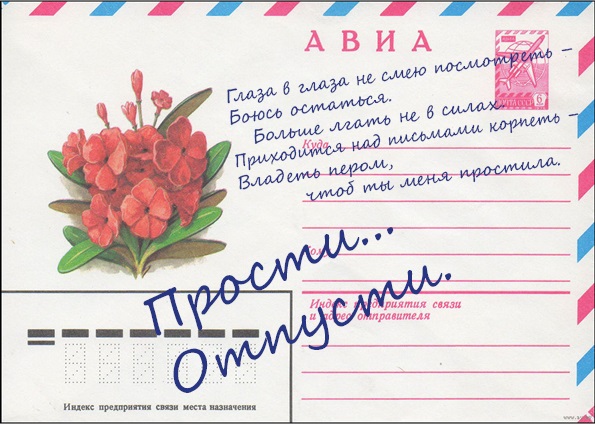 АВИА
Глаза в глаза не смею посмотреть –
Боюсь остаться.
Больше лгать не в силах.
Куда
Приходится над письмами корпеть –
Владеть пером,
чтоб ты меня простила.
Кому
Прости...
Отпусти.
Индекс предприятия связи
и адрес отправителя
Индекс предприятия связи места назначения